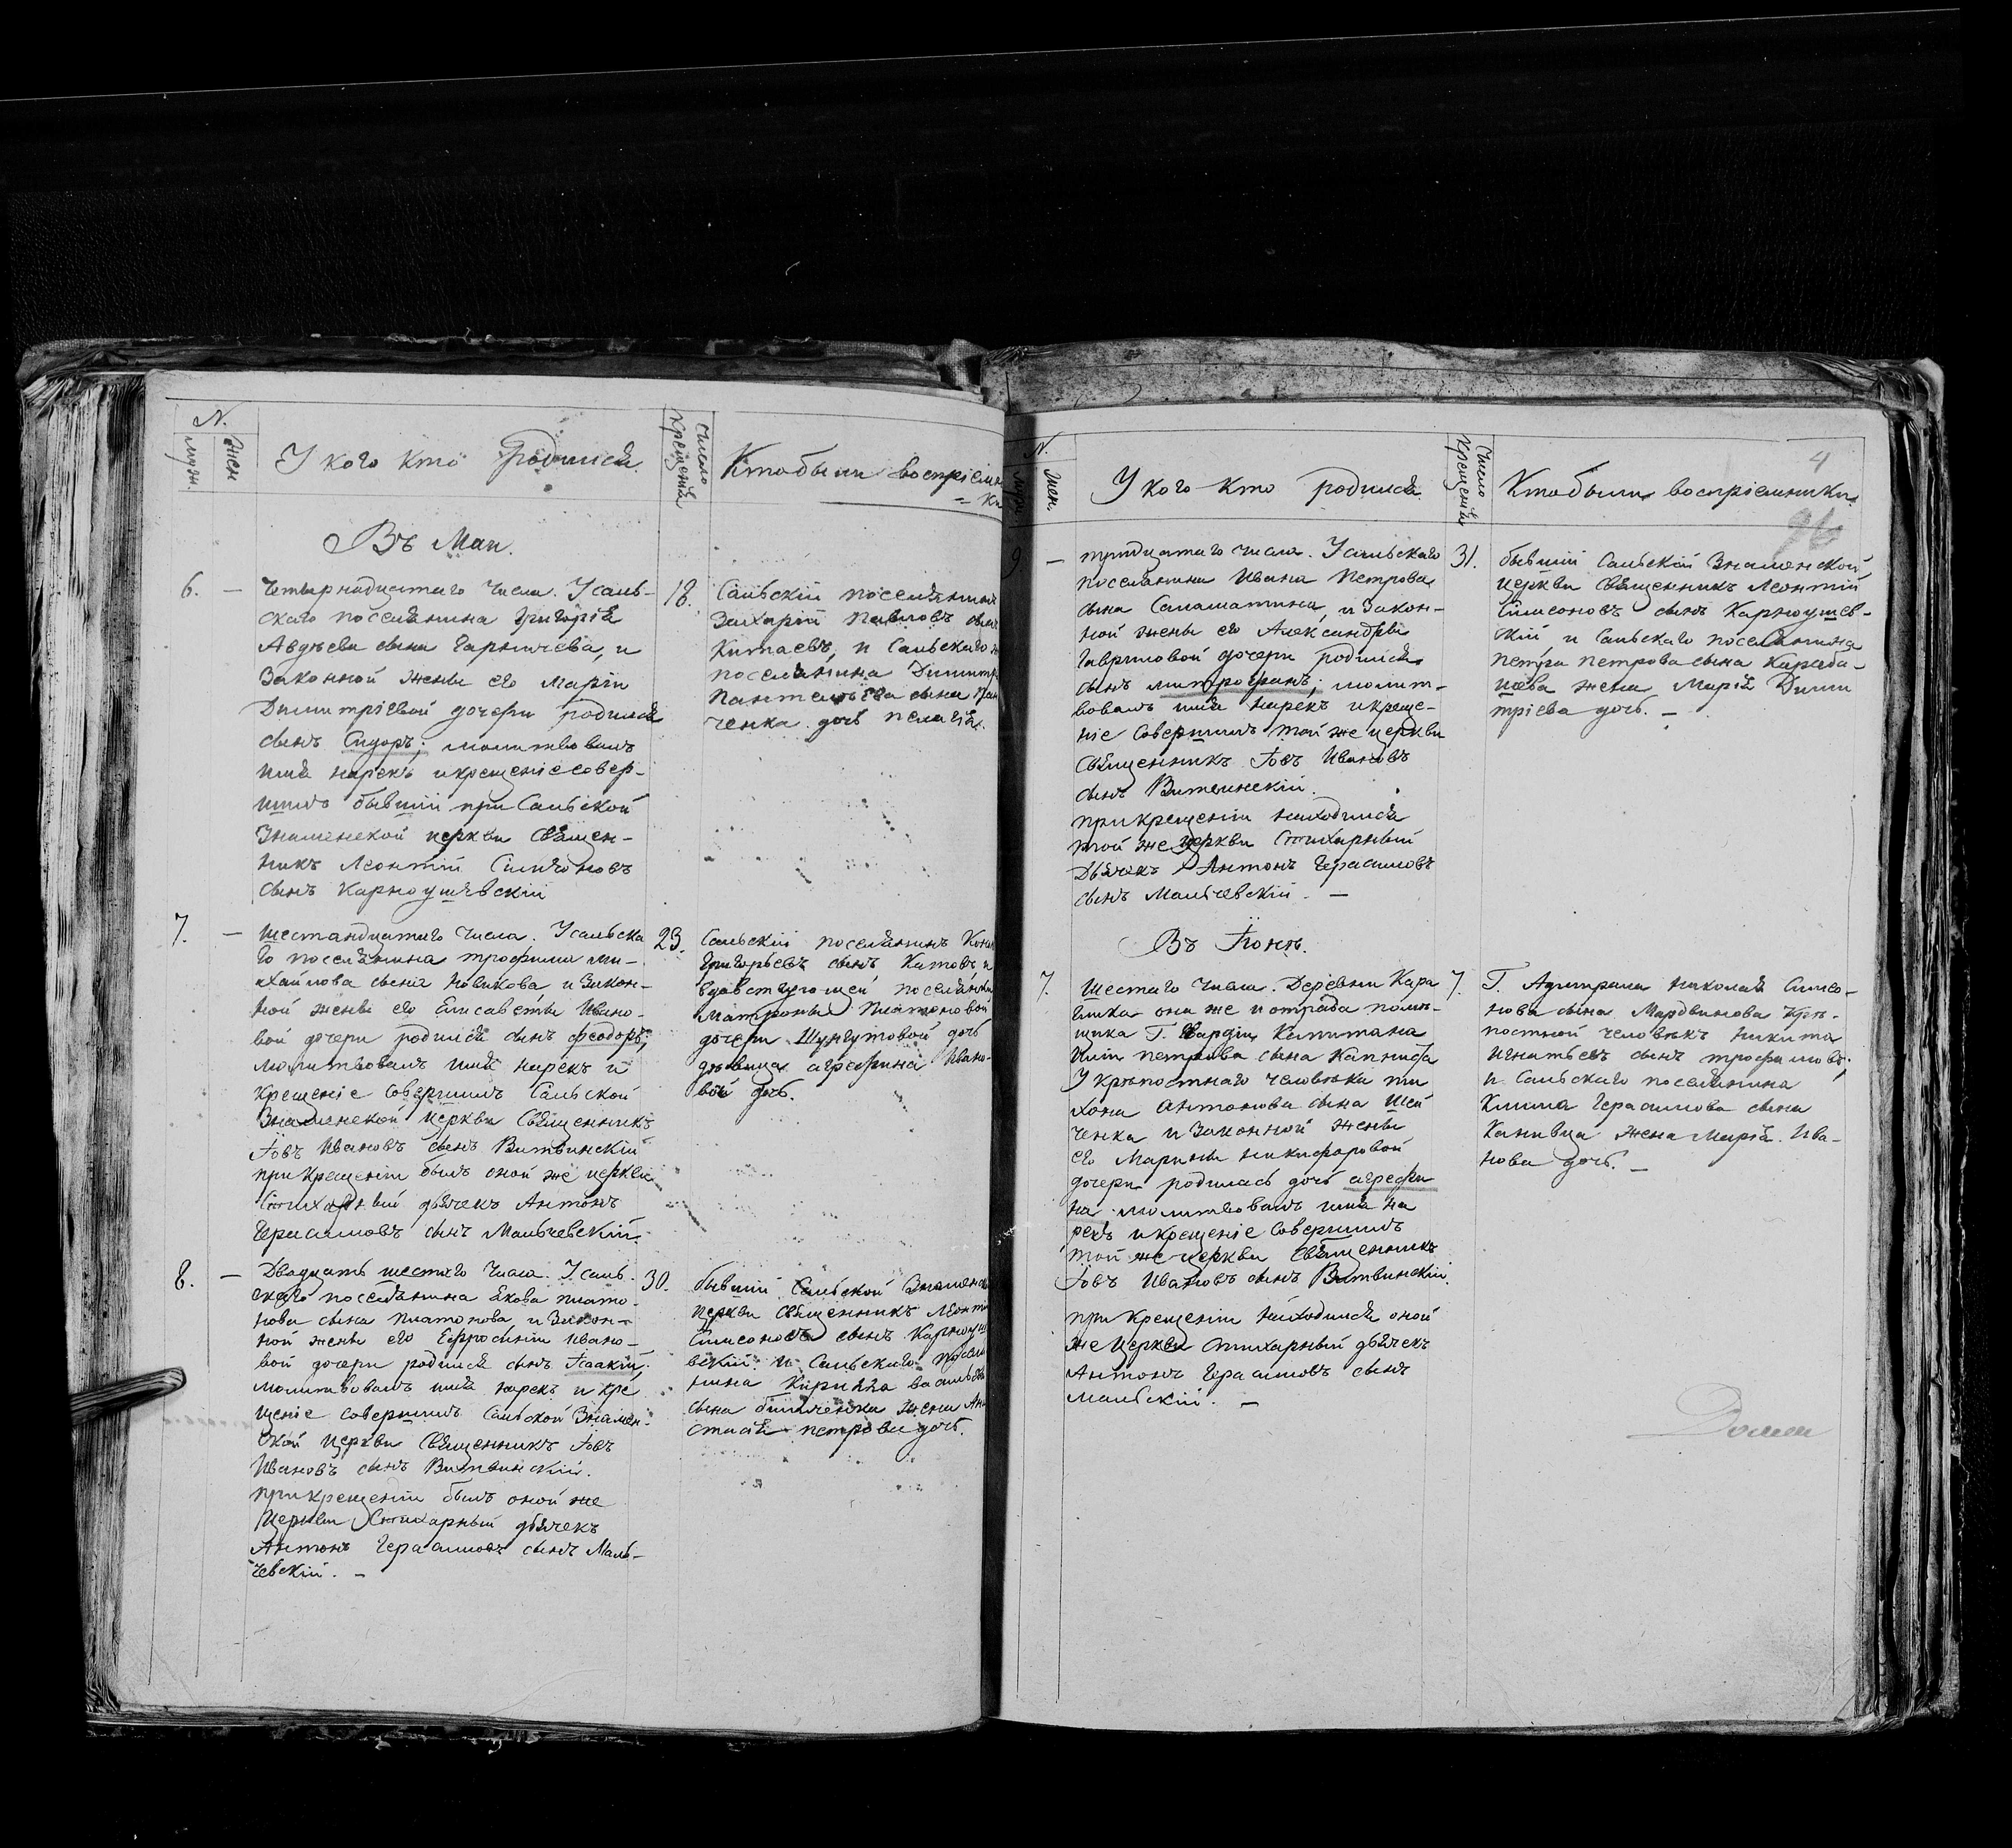 N.
муж.
жен
У кого кто родился.
число крещенія
Кто были воспріемни
= ки
Въ Маи.
6. — Четырнадцатаго числа. У саль-
скаго поселянина Григорія
Авдѣева сына Гарничева, и
законной жены его Маріи
Димитріевой дочери родился
сынъ Сидоръ; молитвовалъ
имя нарекъ и крещеніе совер-
шилъ бывшій при Сальской
Знаменской церкви священ-
никъ Леонтій Симеоновъ
сынъ Карноушевскій
18. Сальскій поселянинъ
Захарій Павловъ сынъ
Китаевъ, и Сальскаго
поселянина Димитр
Пантелѣева сына
ченка дочь Пелагія.
7. — Шестнадцатаго числа. У сальска
го поселянина Трофима Ми-
хайлова сына Новикова и закон-
ной жены его Елисаветы Ивано-
вой дочери родился сынъ Феодоръ;
молитвовалъ имя нарекъ и
крещеніе совершилъ Сальской
Знаменской церкви священникъ
Іовъ Ивановъ сынъ Витвинскій
при крещеніи былъ оной же церкви
стихарный дьячекъ Антонъ
Герасимовъ сынъ Мальчевскій.
23. Сальскій поселянинъ
Григорьевъ сынъ Китовъ и
вдовствующей поселянки
Матроны Платоновой
дочери Шунгутовой дочь
дѣвица Агрефина Ивано-
вой дочь.
8. — Двадцать шестаго числа. У саль-
скаго поселянина Екова Плато-
нова сына Платонова, и закон-
ной жены его Ефросиніи Ивано-
вой дочери родился сынъ Ісаакій.
молитвовалъ имя нарекъ и кре
щеніе совершилъ Сальской Знамен-
ской церкви священникъ Іовъ
Ивановъ сынъ Витвинскій.
при крещеніи былъ оной же
церкви стихарный дьячекъ
Антонъ Герасимовъ сынъ Маль-
чевскій. —
30. бывшій Сальской Знаменск
церкви священникъ Леонті
Симеоновъ сынъ Карноуше
вскій и Сальскаго поселя
нина Кирилла Василье
сына жена Ана
стасія Петрова дочь.
N.
жен.
У кого кто родился.
Число крещенія
Кто были воспріемники.
4
96
9 — тридцатаго числа. У сальскаго
поселянина Ивана Петрова
сына Саламатина, и закон-
ной жены его Александры
Гавриловой дочери родился
сынъ Митрофанъ; молит-
вовалъ имя нарекъ и креще-
ніе совершилъ той же церкви
священникъ Іовъ Ивановъ
сынъ Витвинскій.
при крещеніи находился
той же церкви стихарный
дьячекъ Антонъ Герасимовъ
сынъ Мальчевскій. —
31. бывшій Сальскій Знаменской
церкви священникъ Леонтій
Симеоновъ сынъ Карноушев-
скій и Сальскаго поселянина
Петра Петрова сына
жена Марія Дими
тріева дочь. —
Въ Іюнѣ.
7. Шестаго числа. Деревни Кара
она же и отрада помѣ-
щика Г. Гвардіи Капитана
Ильи Петрова сына Капниса
У крѣпостнаго человѣка Ти
хона Антонова сына Шей
ченка и законной жены
его Марины Никифоровой
дочери родилась дочь Агрефи
на молитвовалъ имя на
рекъ и крещеніе совершилъ
той же церкви священникъ
Іовъ Ивановъ сынъ Витвинскій.
при крещеніи находился оной
же церкви стихарный дьячекъ
Антонъ Герасимовъ сынъ
Мальскій. —
7. Г. Адмирала Николая Симео-
нова сына Мардвинова крѣ-
постной человѣкъ Никита
Игнатьевъ сынъ Трофимовъ;
и Сальскаго поселянина
Клима Герасимова сына
Канивца жена Марія Ива-
нова дочь. —